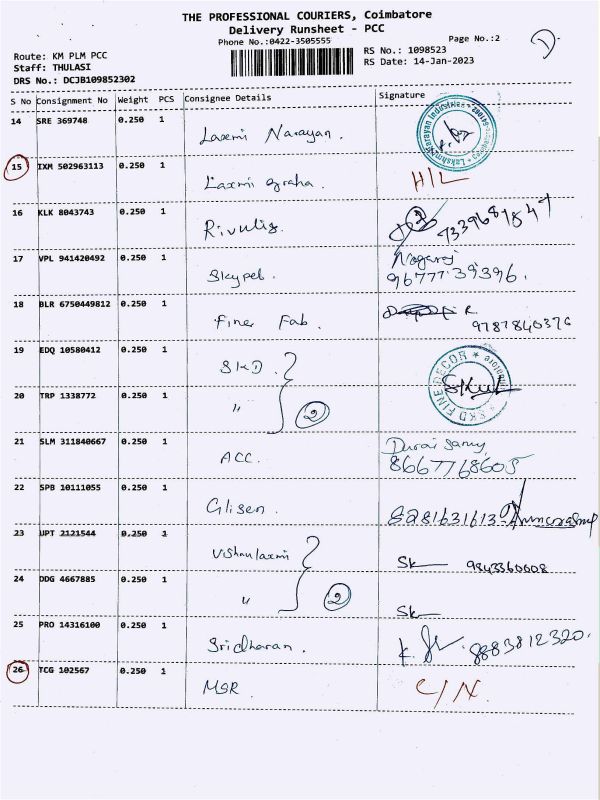 THE PROFESSIONAL COURIERS, Coimbatore
Delivery Runsheet - PCC
Phone No.:0422-3505555
Page No.:2
Route: KM PLM PCC
Staff: THULASI
DRS No.: DCJB109852302
RS No.: 1098523
RS Date: 14-Jan-2023
S No Consignment No Weight PCS Consignee Details Signature
14 SRE 369748 0.250 1 Laxmi Narayan.
15 IXM 502963113 0.250 1 Laxmi graha. H/L
16 KLK 8043743 0.250 1 Rivulis. 7339687847
17 VPL 941420492 0.250 1 Skypet. Nagaraj
9677739396.
18 BLR 6750449812 0.250 1 Finer Fab. R.
9787840376
19 EDQ 10580412 0.250 1 SKD. SKD FINE DECOR
20 TRP 1338772 0.250 1 " 2
21 SLM 311840667 0.250 1 ACC. Durai Samy
8667768605
22 SPB 10111055 0.250 1 Glisen.
23 UPT 2121544 0.250 1 Vishnulaxmi Sk 9843360608
24 DDG 4667885 0.250 1 " 2 Sk
25 PRO 14316100 0.250 1 Sridharan. 8883812320.
26 TCG 102567 0.250 1 MGR. C/N.